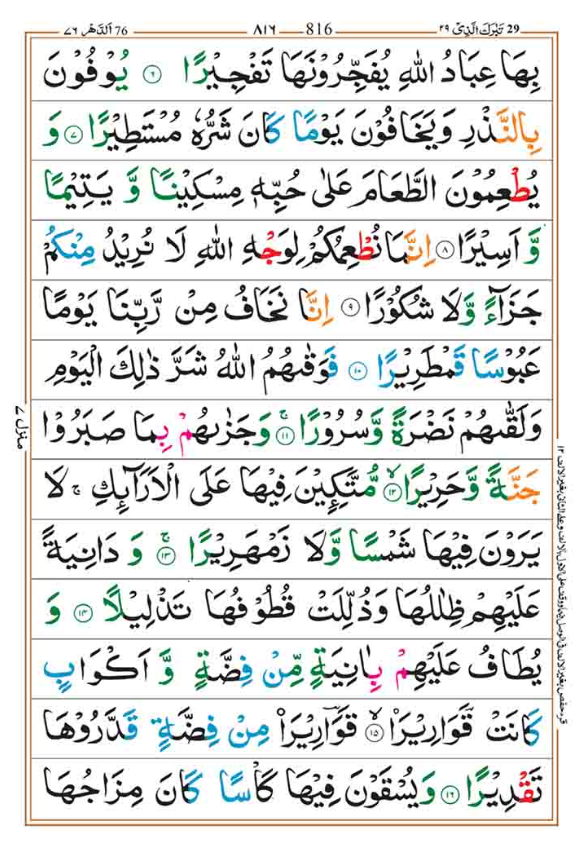 29 تَبٰرَكَ الَّذِىْ ٢٩
816 ٨١٦
76 اَلدَّهْر ٧٦
بِهَا عِبَادُ اللّٰهِ يُفَجِّرُوْنَهَا تَفْجِيْرًا ۝٦ يُوْفُوْنَ
بِالنَّذْرِ وَيَخَافُوْنَ يَوْمًا كَانَ شَرُّهٗ مُسْتَطِيْرًا ۝٧ وَ
يُطْعِمُوْنَ الطَّعَامَ عَلٰى حُبِّهٖ مِسْكِيْنًا وَّ يَتِيْمًا
وَّ اَسِيْرًا ۝٨ اِنَّمَا نُطْعِمُكُمْ لِوَجْهِ اللّٰهِ لَا نُرِيْدُ مِنْكُمْ
جَزَآءً وَّلَا شُكُوْرًا ۝٩ اِنَّا نَخَافُ مِنْ رَّبِّنَا يَوْمًا
عَبُوْسًا قَمْطَرِيْرًا ۝١٠ فَوَقٰىهُمُ اللّٰهُ شَرَّ ذٰلِكَ الْيَوْمِ
وَلَقّٰىهُمْ نَضْرَةً وَّسُرُوْرًا ۝١١ۚ وَجَزٰىهُمْ بِمَا صَبَرُوْا
جَنَّةً وَّحَرِيْرًا ۝١٢ۙ مُّتَّكِـِٕيْنَ فِيْهَا عَلَى الْاَرَآىِٕكِ ۚ لَا
يَرَوْنَ فِيْهَا شَمْسًا وَّلَا زَمْهَرِيْرًا ۝١٣ۚ وَ دَانِيَةً
عَلَيْهِمْ ظِلٰلُهَا وَذُلِّلَتْ قُطُوْفُهَا تَذْلِيْلًا ۝١٤ وَ
يُطَافُ عَلَيْهِمْ بِاٰنِيَةٍ مِّنْ فِضَّةٍ وَّ اَكْوَابٍ
كَانَتْ قَوَارِيْرَا۠ ۝١٥ۙ قَوَارِيْرَا۠ مِنْ فِضَّةٍ قَدَّرُوْهَا
تَقْدِيْرًا ۝١٦ وَيُسْقَوْنَ فِيْهَا كَاْسًا كَانَ مِزَاجُهَا
منزل ٧